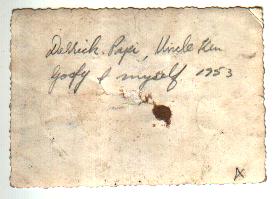 Dellrick. Papi, Uncle Ken
Goofy & myself 1953
X